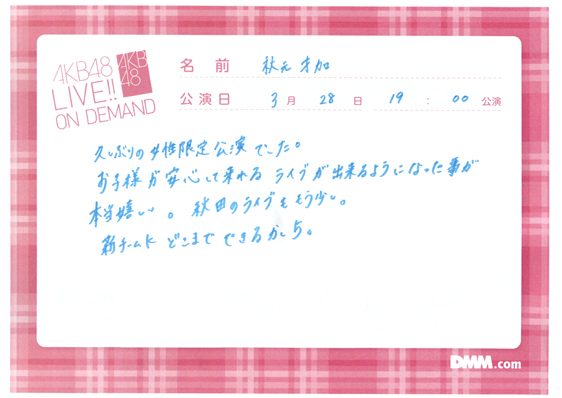 AKB48
LIVE!!
ON DEMAND
AKB
48
名前 秋元才加
公演日 3月28日 19:00公演
久しぶりの女性限定公演でした。
お子様が安心して来れるライブが出来るようになった事が
本当嬉しい。秋田のライブももう少し。
新チームK どこまでできるかしら。
DMM.com